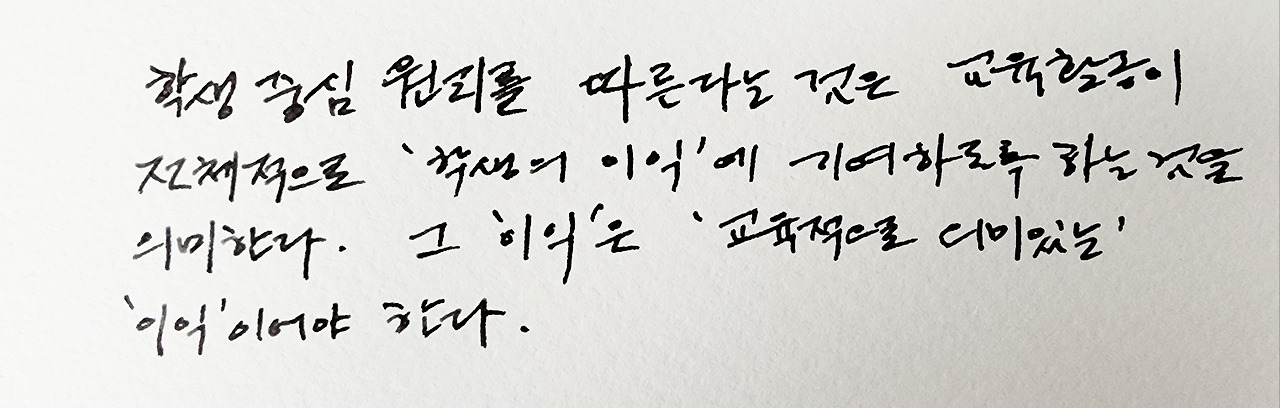 학생 중심 원리를 따른다는 것은 교육활동이
전체적으로 '학생의 이익'에 기여하도록 하는 것을
의미한다. 그 '이익'은 '교육적으로 의미있는'
'이익'이어야 한다.